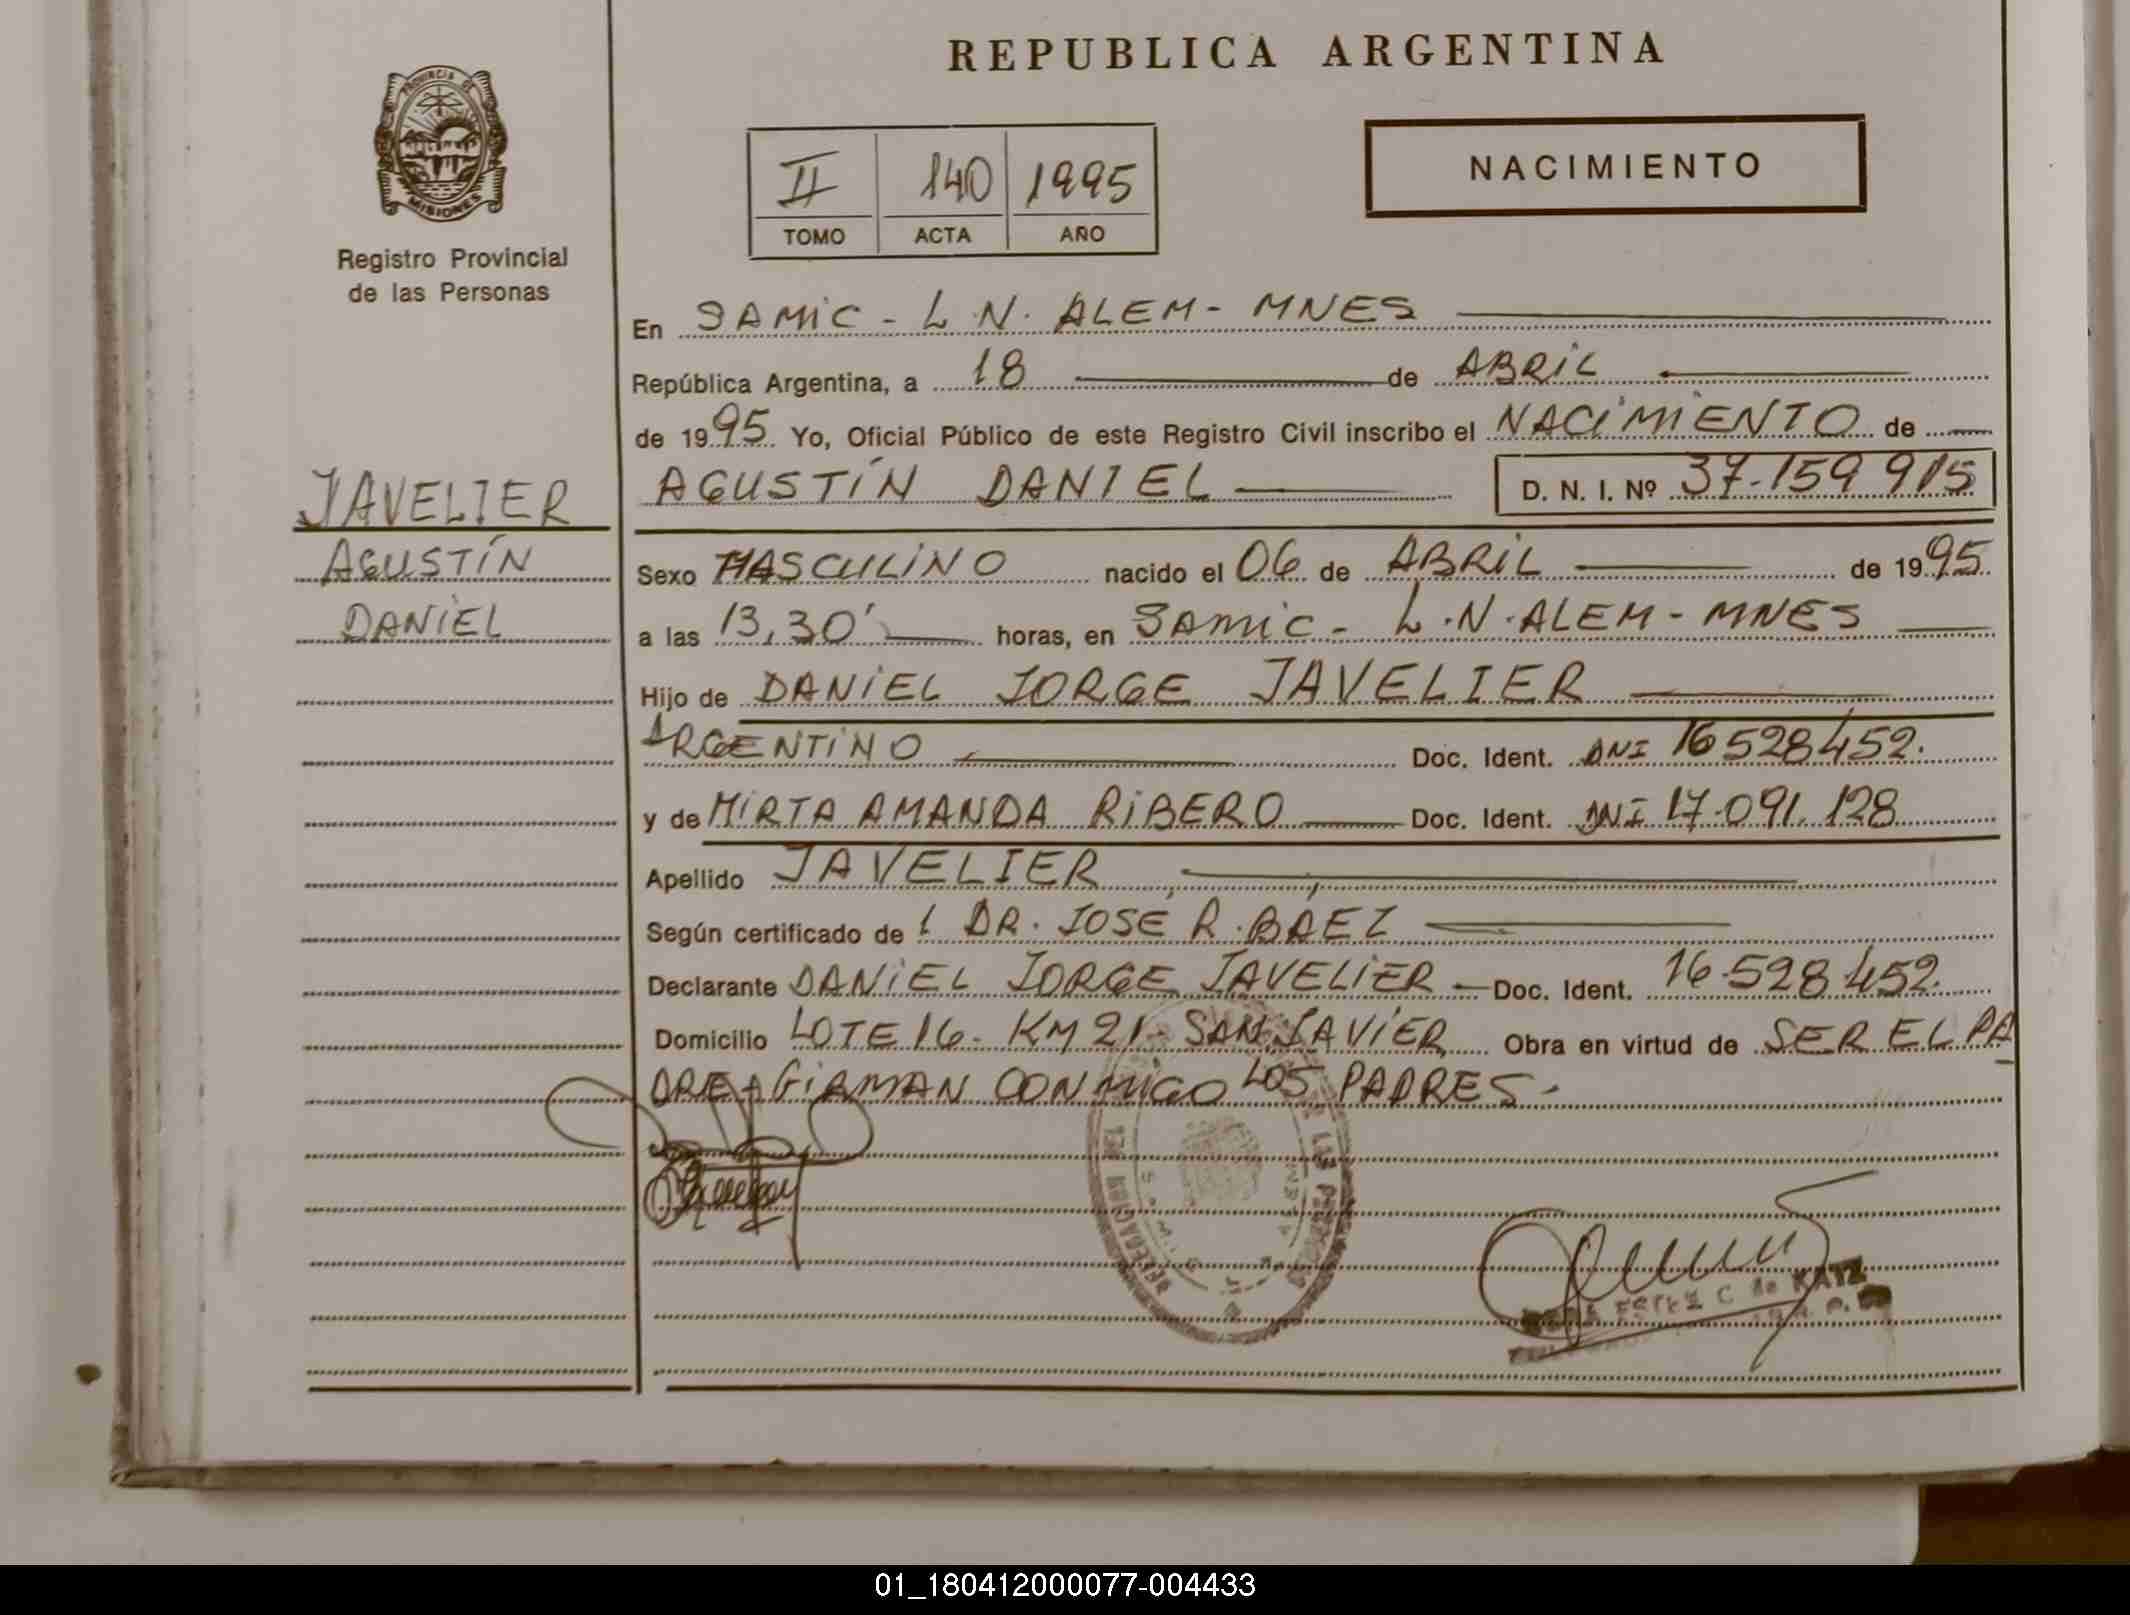 REPUBLICA ARGENTINA
PROVINCIA DE
MISIONES
Registro Provincial
de las Personas
II 140 1995
TOMO ACTA AÑO
NACIMIENTO
En SAMIC - L.N. ALEM - MNES
República Argentina, a 18 de ABRIL
de 1995 Yo, Oficial Público de este Registro Civil inscribo el NACIMIENTO de
AGUSTÍN DANIEL D. N. I. Nº 37.159 915
JAVELIER
AGUSTÍN
DANIEL
Sexo MASCULINO nacido el 06 de ABRIL de 1995
a las 13,30' horas, en SAMIC - L.N. ALEM - MNES
Hijo de DANIEL JORGE JAVELIER
ARGENTINO Doc. Ident. DNI 16 528 452.
y de MIRTA AMANDA RIBERO Doc. Ident. DNI 17.091.128
Apellido JAVELIER
Según certificado de l DR. JOSÉ R. BÁEZ
Declarante DANIEL JORGE JAVELIER - Doc. Ident. 16.528.452.
Domicilio LOTE 16 - KM 21 - SAN JAVIER Obra en virtud de SER EL PA
DRE - FIRMAN CONMIGO LOS PADRES -
C de KATZ
01_180412000077-004433